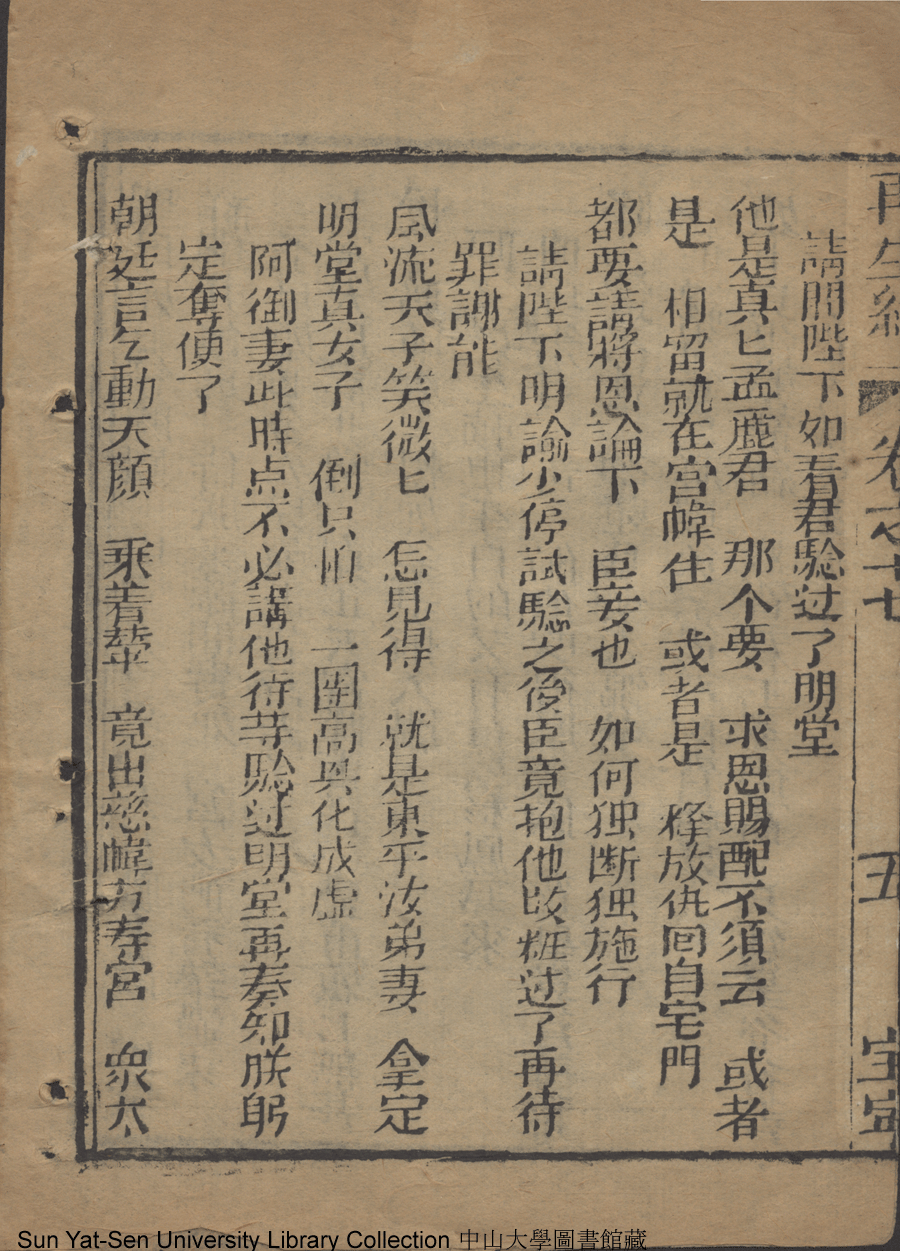 再生緣 卷之十七 五
請問陛下如看君驗过了明堂
他是真匕孟麗君 那个要 求恩賜配不須云 或者
是 相留就在宮幃住 或者是 释放伊囘自宅門
都要請將恩諭下 臣妾也 如何独断独施行
請陛下明諭少停試驗之後臣竟抱他改粧过了再待
罪謝能
風流天子笑微匕 怎見得 就是東平汝弟妻 拿定
明堂真女子 倒只怕 一團高興化成虛
阿御妻此時点不必講他待等驗过明堂再奏知朕躬
定奪便了
朝廷言乞動天顏 乘着輦 竟出慈幃万寿宮 衆太
Sun Yat-Sen University Library Collection 中山大學圖書館藏